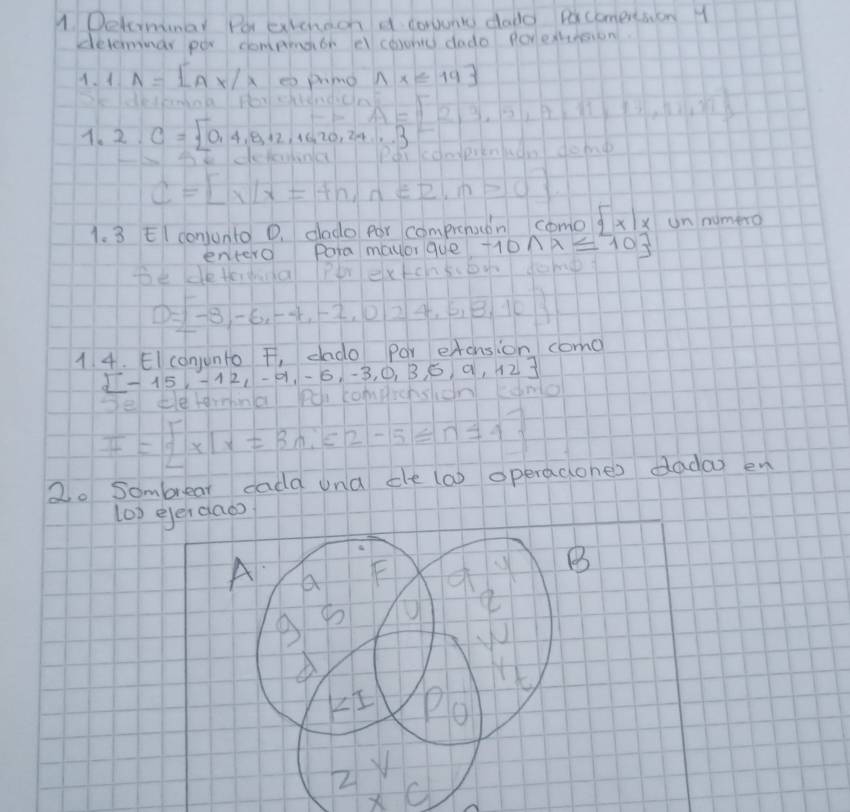 1. Determinar por extencion el conjunto dado por comprension y
determinar por comprension el conjunto dado por extension.
1.1 A = { x / x es primo ∧ x ≤ 19}
Se determina por
A = {2, 3, 5, 7, 11, 13,
1.2. C = {0, 4, 8, 12, 16, 20, 24...}
Se determina por comprension como
C = {x/x = 4n, n ∈ Z, n ≥ 0}
1.3 El conjunto D, dado por comprension como {x|x un numero
entero para mayor que -10 ∧ x ≤ 10}
Se determina por extension como
D={-8, -6, -4, -2, 0, 2, 4, 6, 8, 10}
1.4. El conjunto F, dado por extension como
{-15, -12, -9, -6, -3, 0, 3, 6, 9, 12}
Se determina por comprension como
F = {x/x = 3n, ∈ Z -5 ≤ n ≤ 4}
2. Sombrear cada una de las operaciones dadas en
los ejercicios
A B
a F q y
g s y e
d w
r t
k I p o
z v
x c